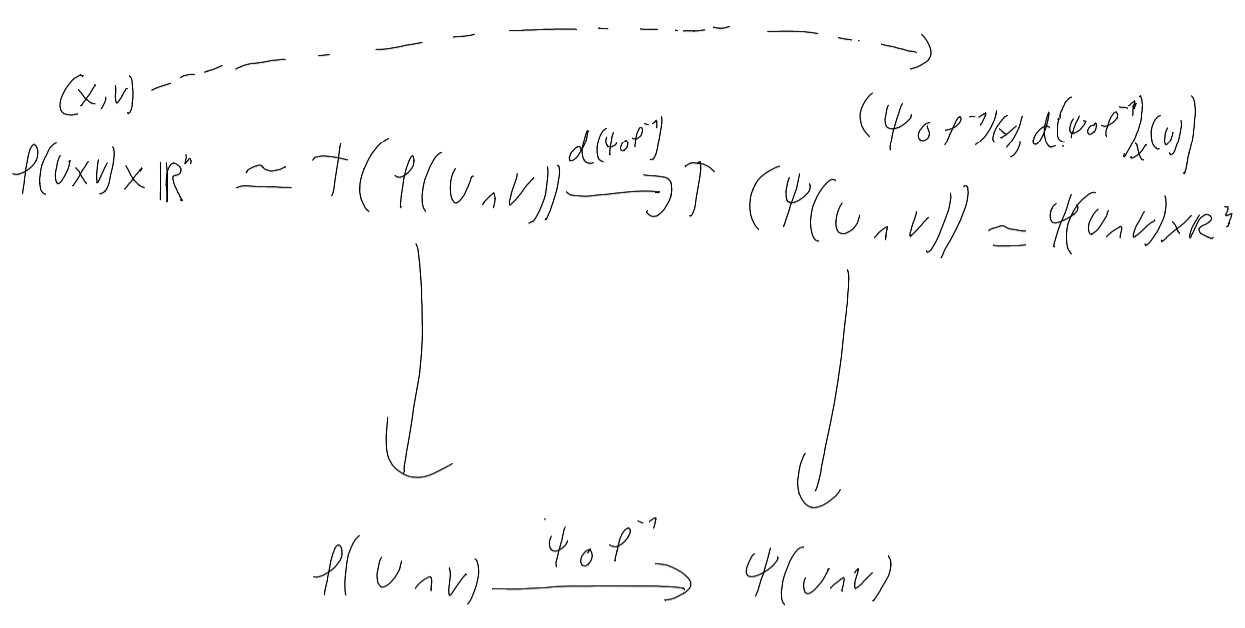 (x,v)
(ψ∘φ⁻¹)(x), d(ψ∘φ⁻¹)ₓ(v))
φ(U×V)×ℝⁿ ≃ T(φ(U∩V)) d(ψ∘φ⁻¹) → T(ψ(U∩V)) ≃ ψ(U∩V)×ℝⁿ
φ(U∩V) ψ∘φ⁻¹ → ψ(U∩V)